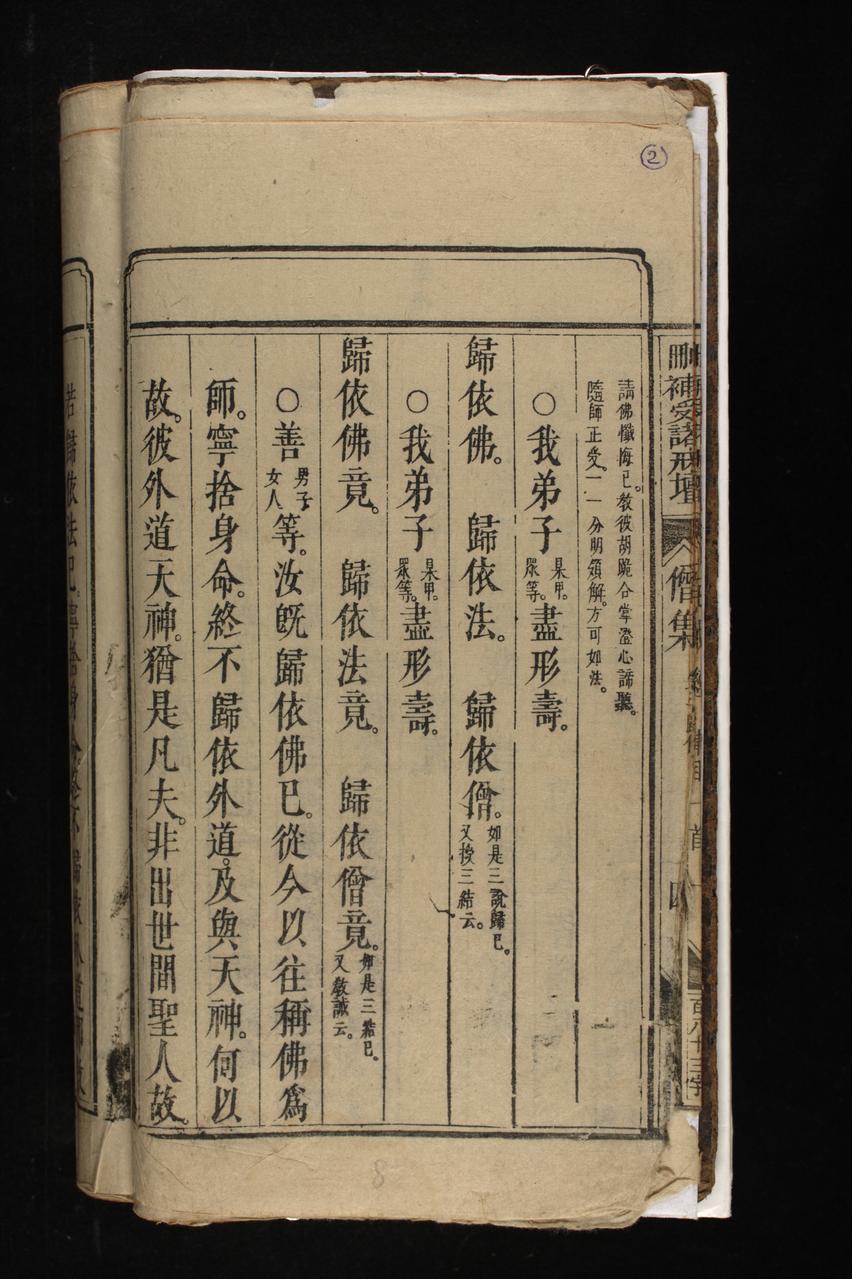 ②
刪補受諸戒壇
僧集
四
百八十三字
請佛懺悔已。教彼胡跪合掌澄心諦聽。
隨師正受。一一分明領解。方可如法。
○我弟子某甲。眾等。盡形壽。
歸依佛。 歸依法。 歸依僧。如是三說歸已。又授三結云。
○我弟子某甲。眾等。盡形壽。
歸依佛竟。 歸依法竟。 歸依僧竟。如是三結已。又教誡云。
○善男子女人等。汝既歸依佛已。從今以往稱佛為
師。寧捨身命。終不歸依外道。及與天神。何以
故。彼外道天神。猶是凡夫。非出世間聖人故。
若歸依法已。寧捨身命終不歸依外道
8